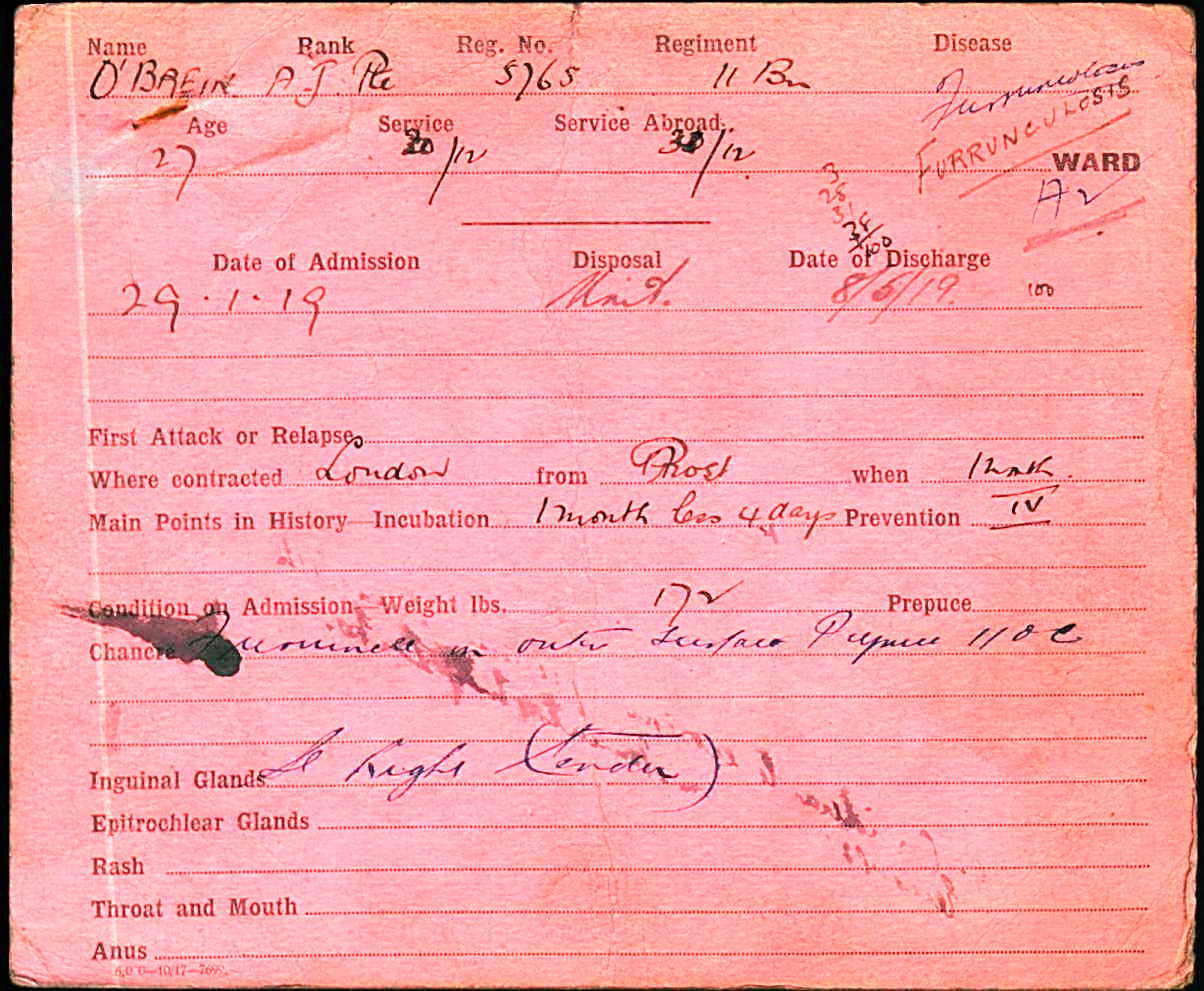 Name Rank Reg. No. Regiment Disease
O'BREIN A J Pte 5765 11 Bn Furrunculosis
FURRUNCULOSIS
Age Service Service Abroad
27 /12 /12
WARD
A2
3
28
31
38
100
Date of Admission Disposal Date of Discharge
29.1.19 Unit. 8/5/19. 100
First Attack or Relapse
Where contracted London from Prost when 1 month.
Main Points in History—Incubation 1 month less 4 days Prevention IV
Condition on Admission—Weight lbs. 172 Prepuce
Chancre Furuncle on outer surface Prepuce 11 o c
Inguinal Glands Right (Tender)
Epitrochlear Glands
Rash
Throat and Mouth
Anus